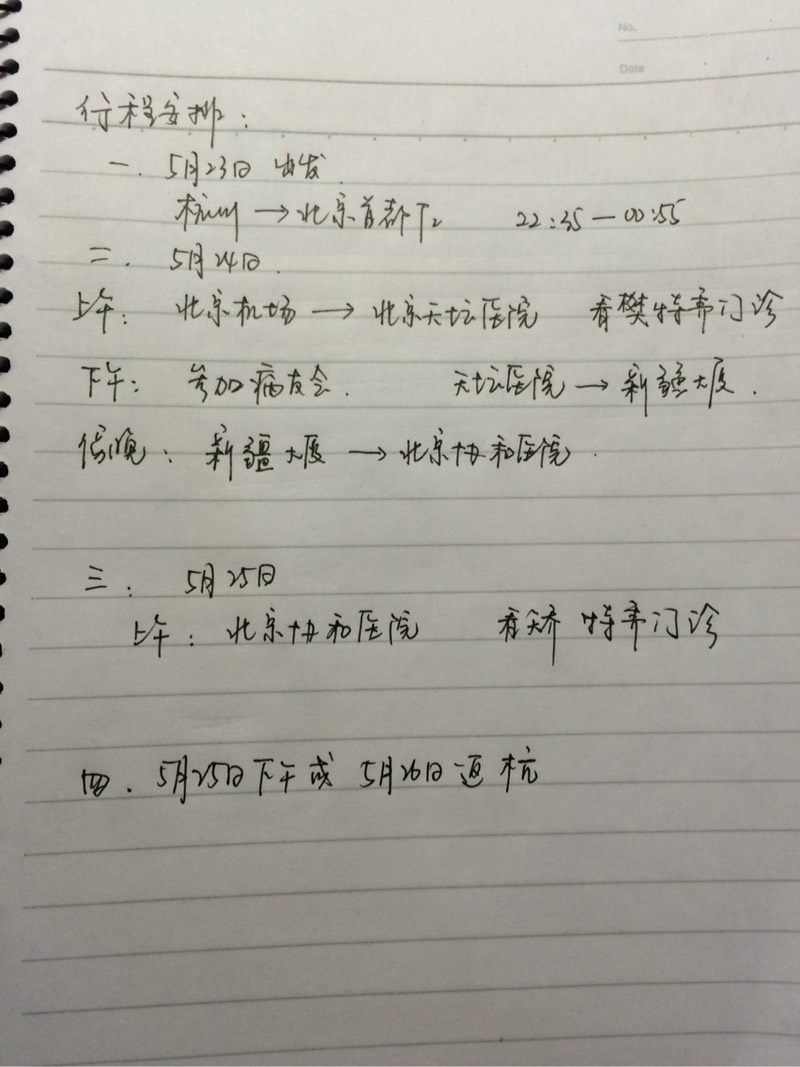 No.
Date
行程安排：
一. 5月23日 出发.
杭州→北京首都T2 22:35—00:55
二. 5月24日.
上午： 北京机场→北京天坛医院 看樊特需门诊
下午： 参加病友会. 天坛医院→新疆大厦.
傍晚： 新疆大厦→北京协和医院.
三. 5月25日
上午： 北京协和医院 看 特需门诊
四. 5月25日下午或 5月26日返杭